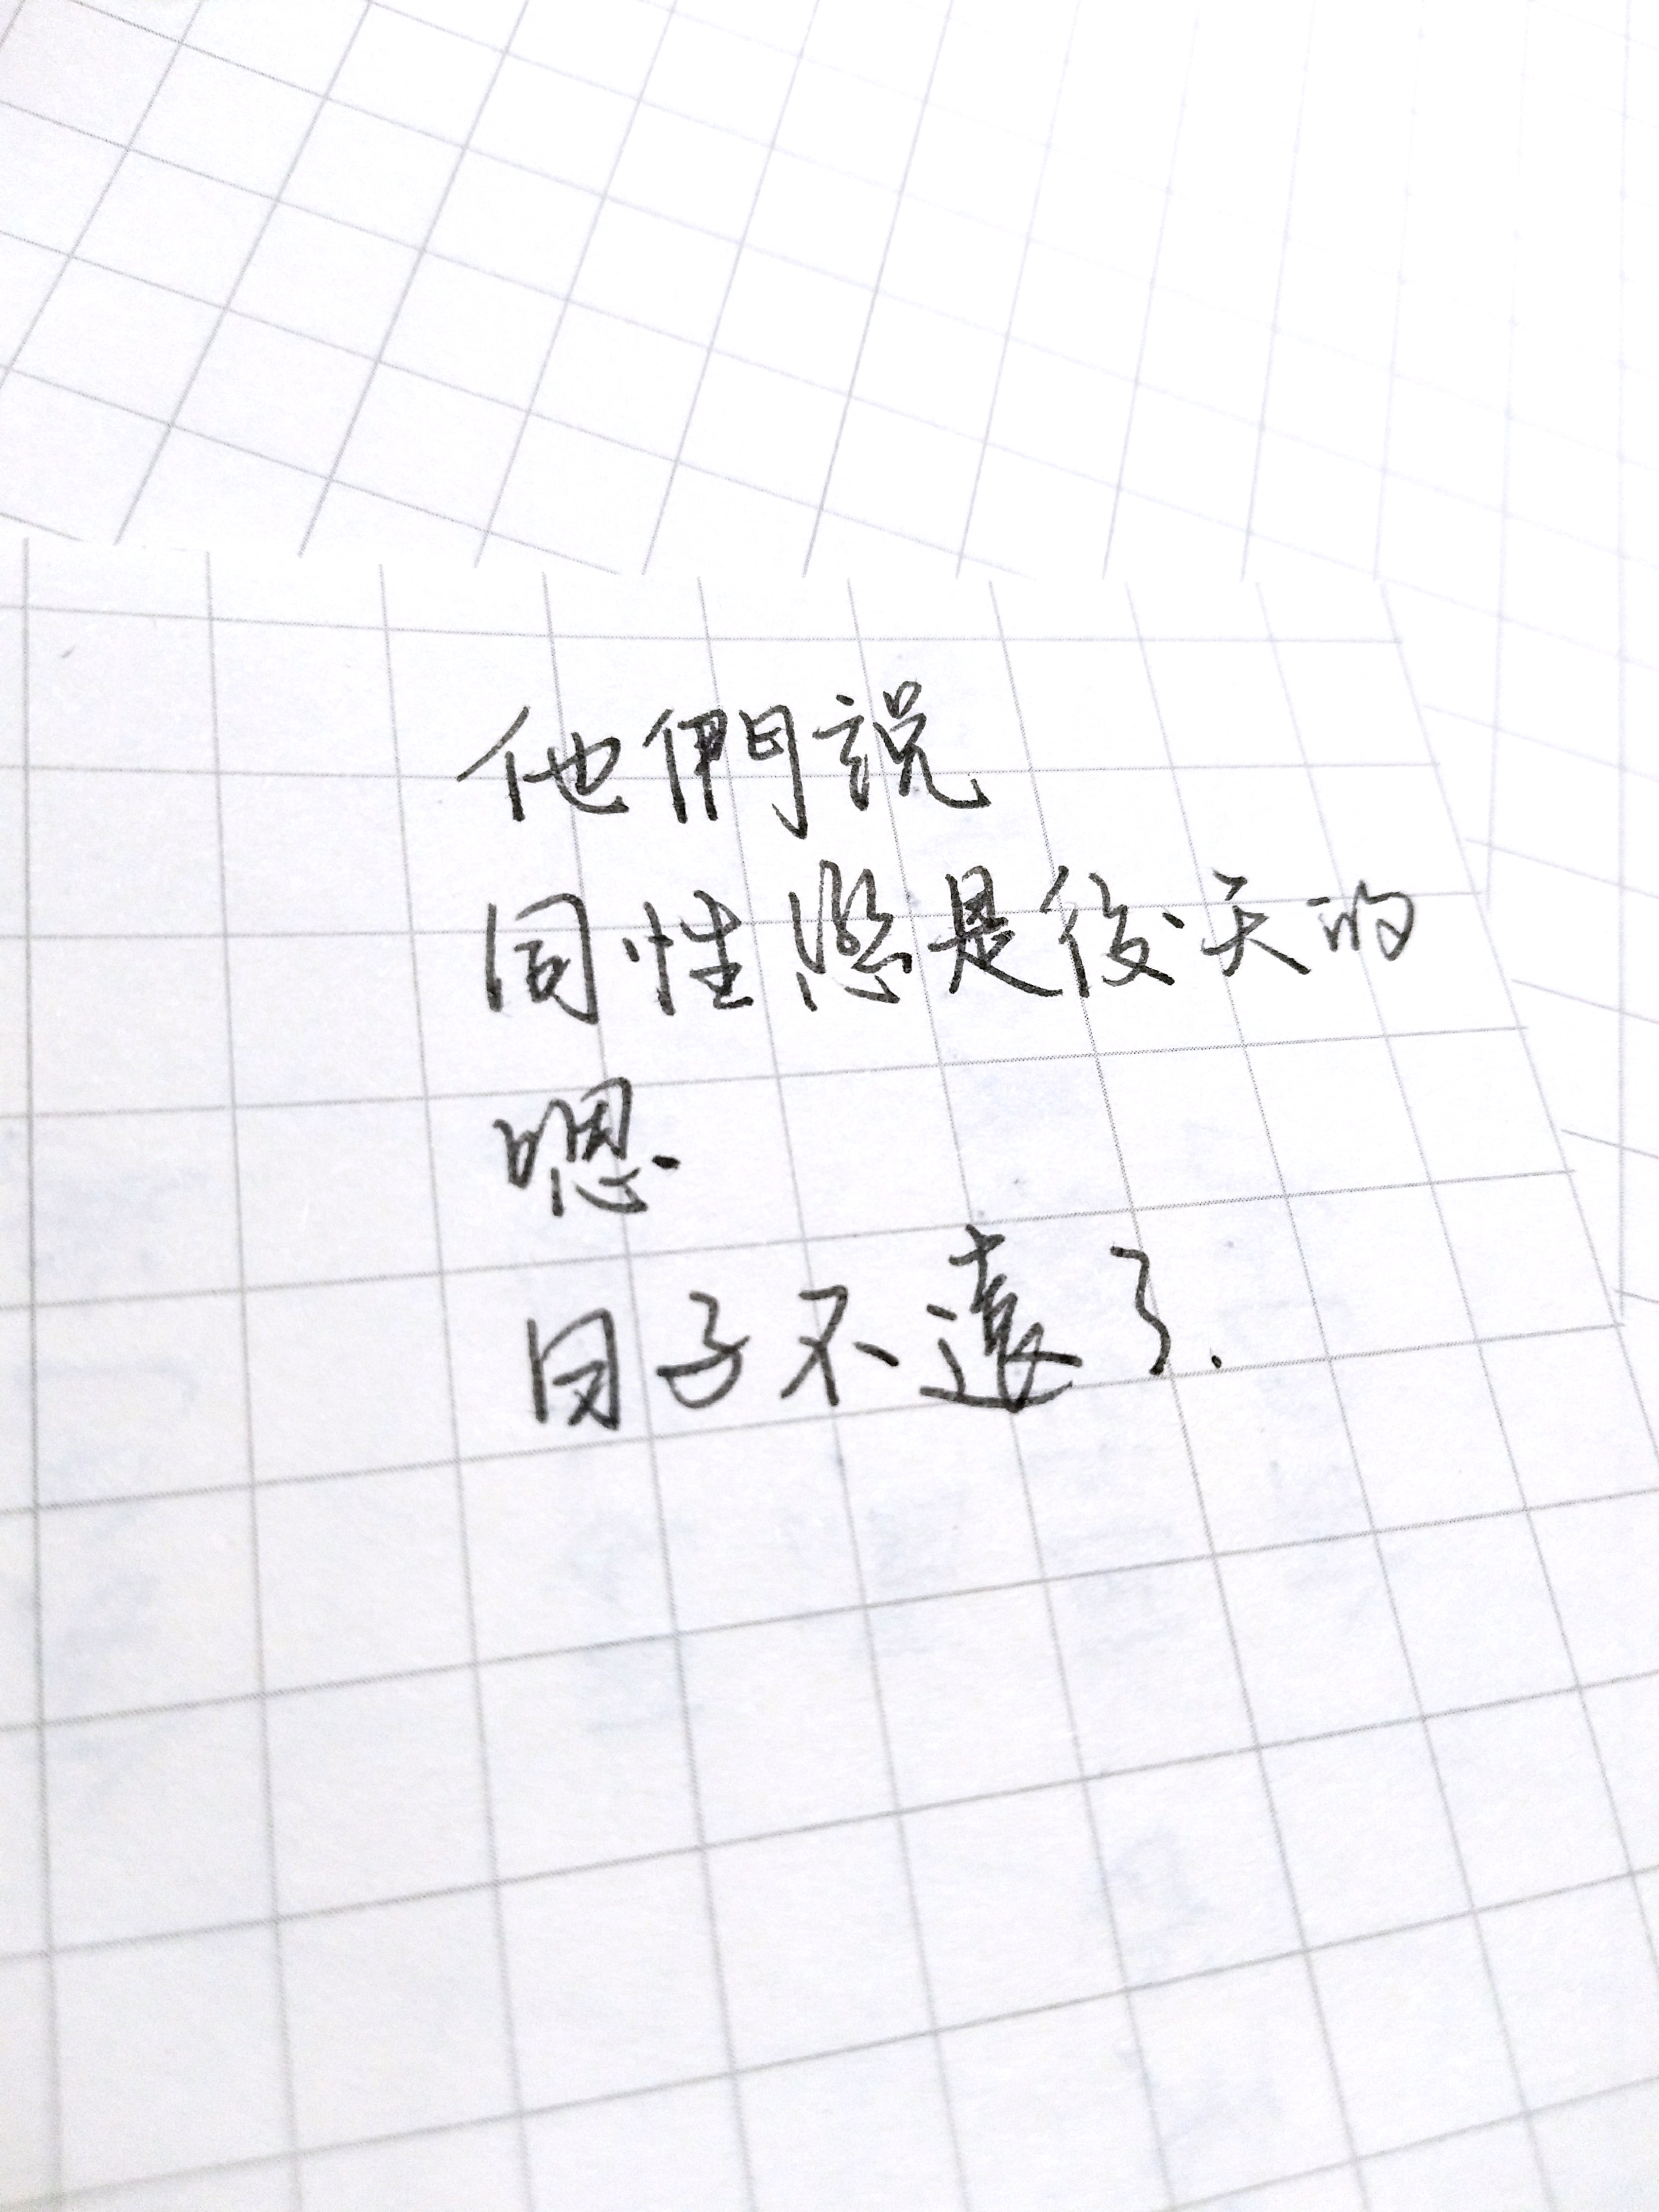 他們說
同性戀是後天的
嗯.
日子不遠了.